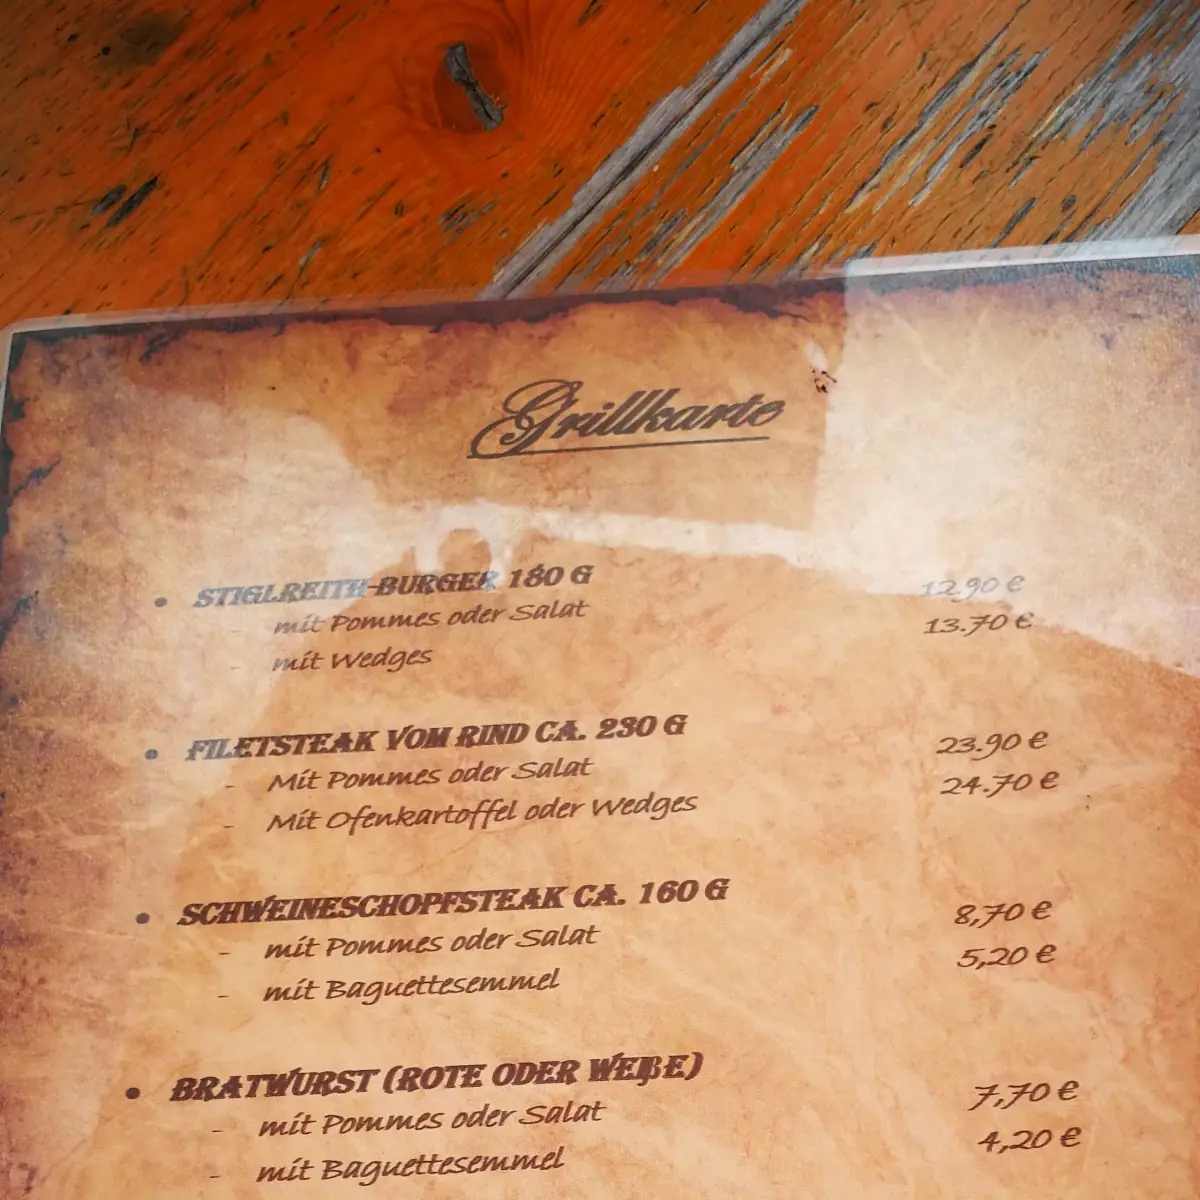 Grillkarte
• STIGLREITH-BURGER 180 G
- mit Pommes oder Salat 12.90 €
- mit Wedges 13.70 €
• FILETSTEAK VOM RIND CA. 230 G
- Mit Pommes oder Salat 23.90 €
- Mit Ofenkartoffel oder Wedges 24.70 €
• SCHWEINESCHOPFSTEAK CA. 160 G
- mit Pommes oder Salat 8,70 €
- mit Baguettesemmel 5,20 €
• BRATWURST (ROTE ODER WEIßE)
- mit Pommes oder Salat 7,70 €
- mit Baguettesemmel 4,20 €